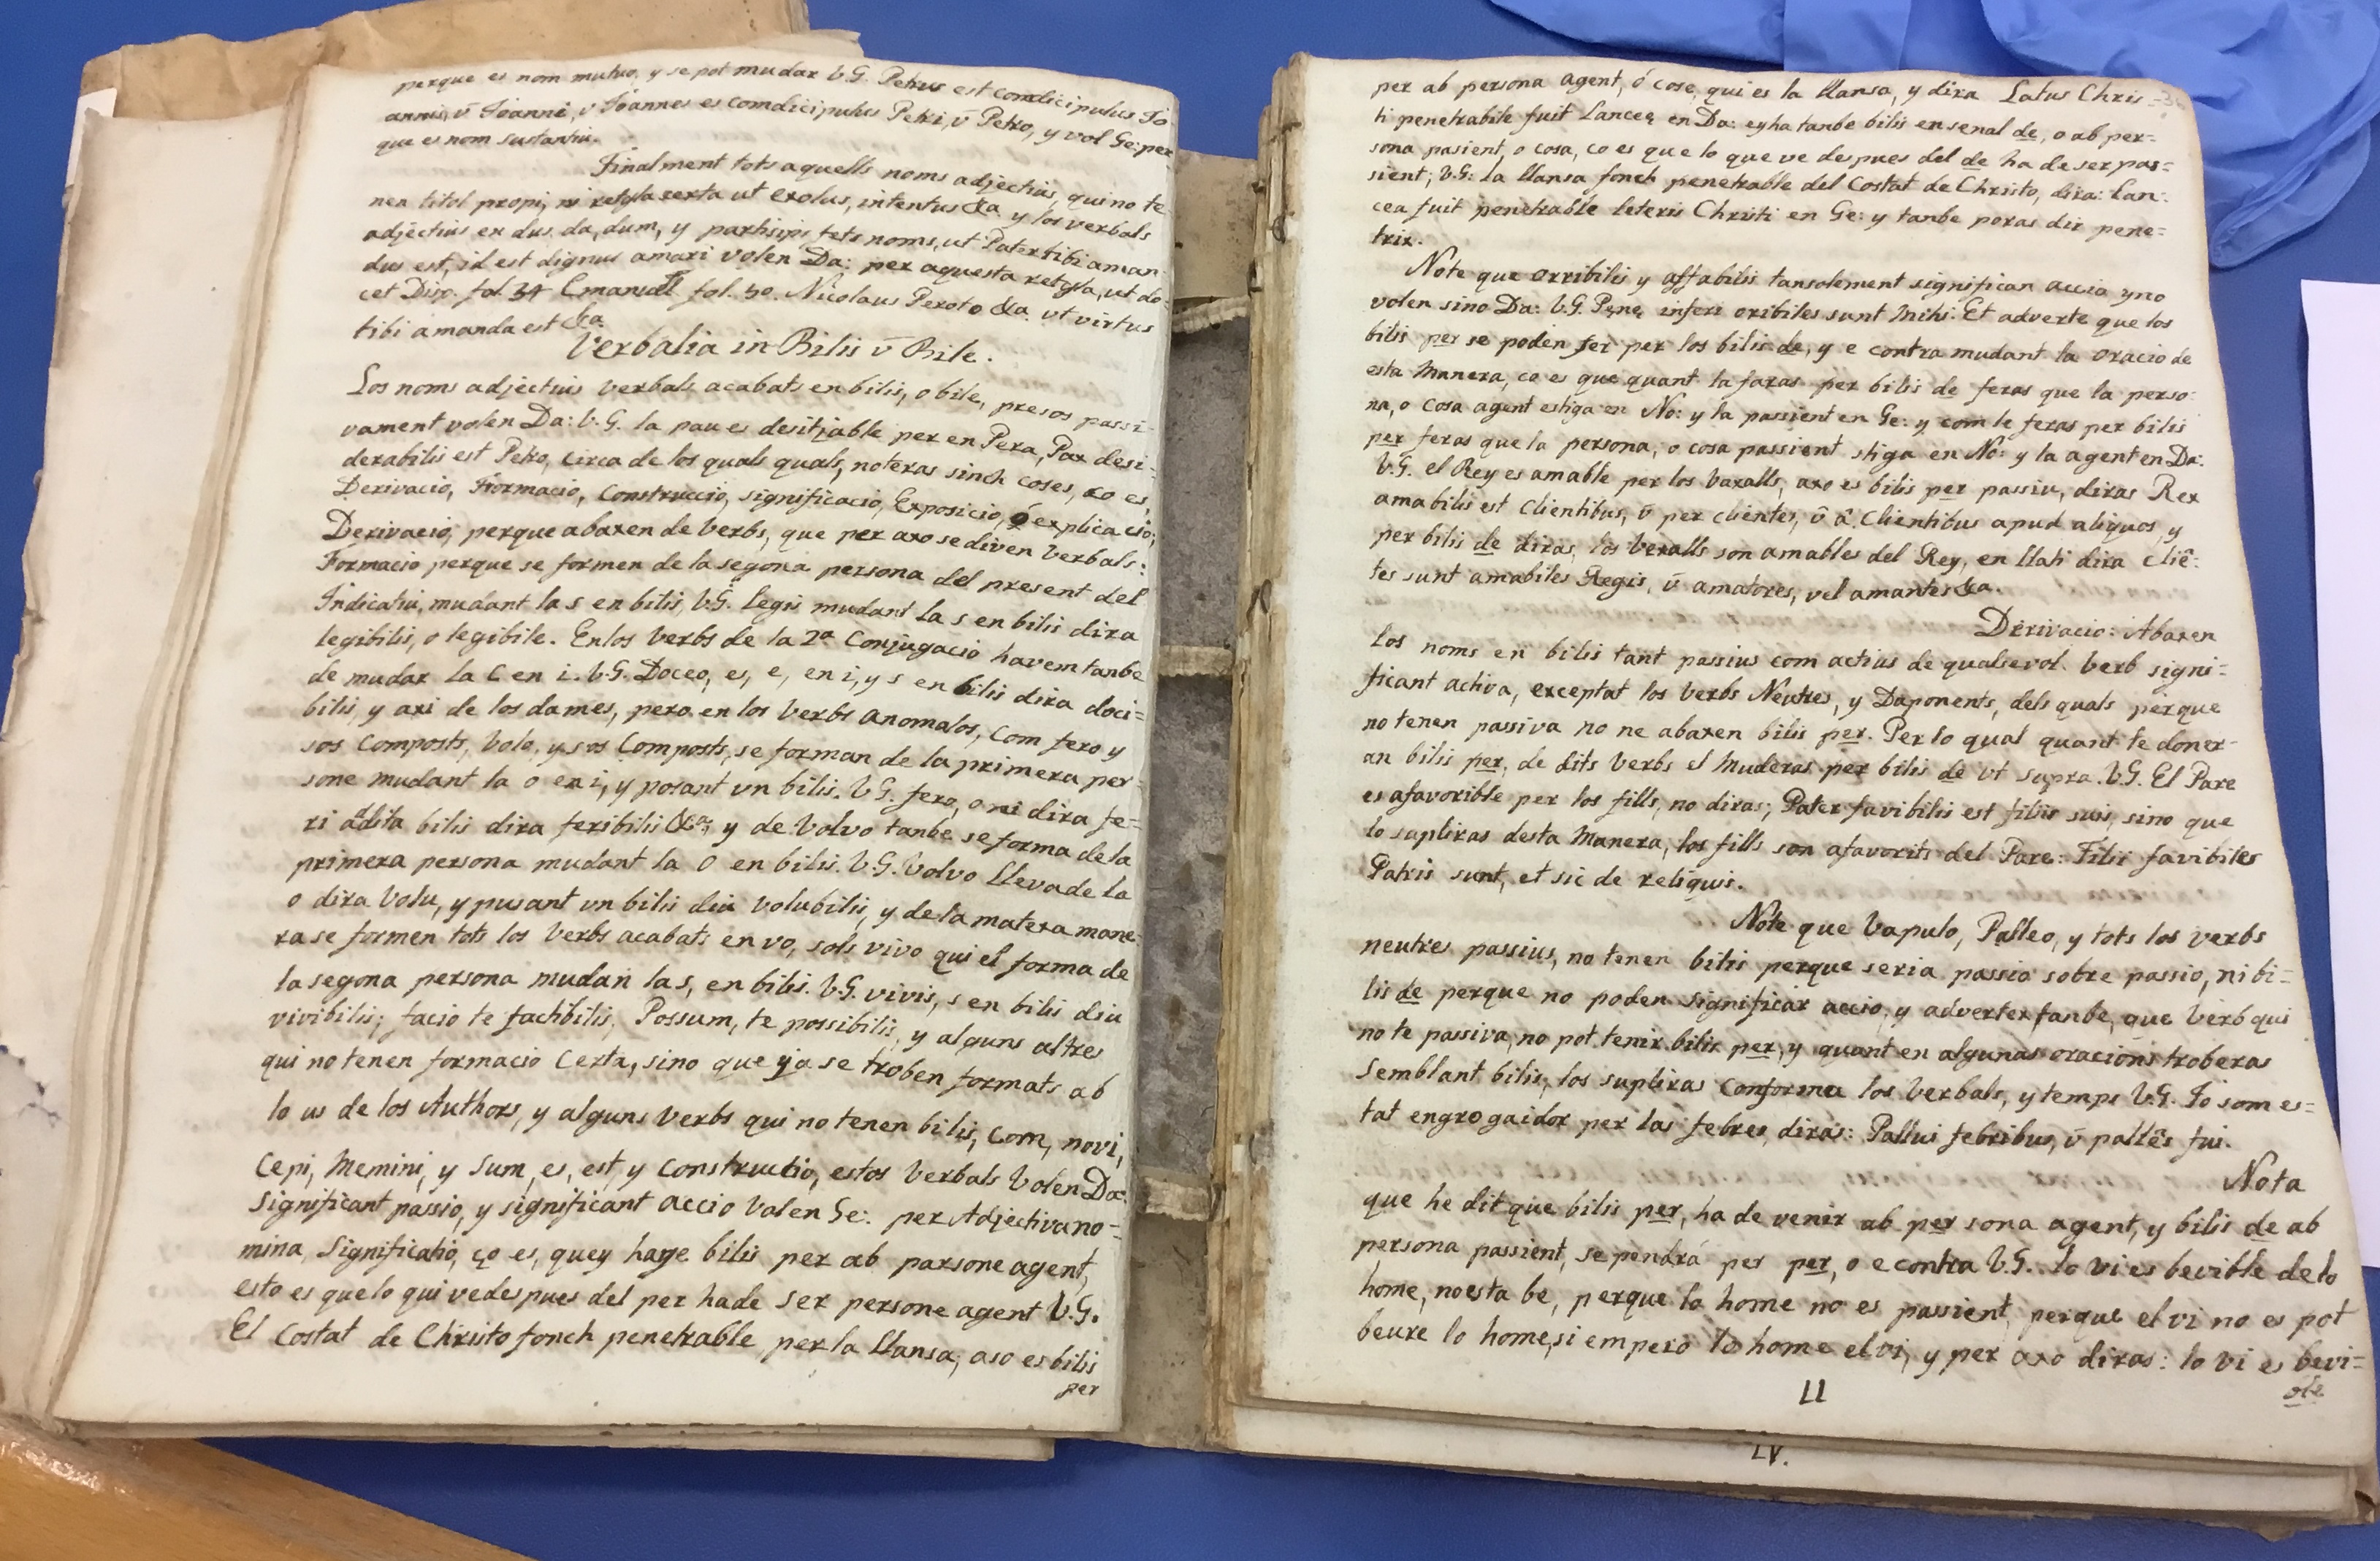 perque es nom mutuo, y se pot mudar V.G. Petrus est condicipulus Jo
annis, v̄ Joanni, v Joannes es comdicipulus Petri, v̄ Petro, y vol Ge: per
que es nom sustantiu.
Finalment tots aquells noms adjectius, qui no te
nen titol propi, ni retgla serta ut exolus, intentus &a y los verbals
adjectius en dus, da, dum, y partisipis fets noms, ut Pater tibi aman
dus est, id est dignus amari volen Da: per aquesta retgla, ut do=
cet Disp. fol. 34 Emanuel fol. 50. Nicolaus Peroto &a. ut virtus
tibi amanda est &a.
Verbalia in Bilis v̄ Bile.
Los noms adjectius verbals acabats en bilis, o bile, presos passi-
vament volen Da: V.G. la pau es desitjable per en Pera, Pax desi-
derabilis est Petro, circa de los quals quals, noteras sinch coses, ço es,
Derivacio, Formacio, Construccio, significacio, Exposicio, ó explicacio;
Derivacio, perque abaxen de Verbs, que per axo se diven Verbals:
Formacio perque se formen de la segona persona del present del
Indicatiu, mudant la s en bilis, V.G. legis mudant la s en bilis dira
legibilis, o legibile. En los Verbs de la 2a Conjugacio havem tanbe
de mudar la C en i. V.G. Doceo, es, e, en i, y s en bilis dira doci=
bilis, y axi de los dames, pero en los Verbs anomalos, com fero y
sos Composts, Volo, y sos Composts, se forman de la primera per-
sone mudant la o en i, y posant un bilis. V.G. fero, o mi dira fe=
ri adita bilis dira feribilis &a, y de Volvo tanbe se forma de la
primera persona mudant la o en bilis. V.G. Volvo lleva de la
o dira Volu, y pusant un bilis diu Volubilis, y de la matexa mane
ra se formen tots los Verbs acabats en vo, sols vivo qui el forma de
la segona persona mudan la s, en bilis. V.G. vivis, s en bilis diu
vivibilis; facio te factibilis, Possum, te possibilis, y alguns altres
qui no tenen formacio Certa, sino que ya se troben formats ab
lo us de los Authors, y alguns Verbs qui no tenen bilis, com, novi,
Cepi, Memini, y Sum, es, est, y Constructio, estos Verbals Volen Da:
significant passio, y significant accio Volen Ge: per Adjectiva no=
mina, Significatio, ço es, quey haye bilis per ab parsone agent,
esto es que lo qui ve despues del per ha de ser persone agent V.G.
El Costat de Christo fonch penetrable per la llansa; aso es bilis
per
per ab persona agent, ó cose, qui es la llansa, y dira Latus Chris
ti penetrabile fuit Lanceę en Da: ey ha tanbe bilis en senal de, o ab per=
sona pasient, o cosa, ço es que lo que ve despues del de ha de ser pas=
sient; V.G: la llansa fonch penetrable del Costat de Christo, dira: Lan:
cea fuit penetrable leteris Christi en Ge: y tanbe poras dir pene=
trix.
Note que orribilis y affabilis tansolement significan accia y no
volen sino Da: V.G. Pęnę inferi oribiles sunt mihi. Et adverte que los
bilis per se poden fer per los bilis de, y e contra mudant la oracio de
esta manera, ço es que quant la faras per bilis de feras que la perso:
na, o cosa agent estiga en No: y la passient en Ge: y com le feras per bilis
per feras que la persona, o cosa passient stiga en No: y la agent en Da:
V.G. el Rey es amable per los Vaxalls, axo es bilis per passiu, diras Rex
amabilis est Clientibus, v̄ per clientes, v̄ â Clientibus apud aliquos, y
per bilis de diras, los Vexalls son amables del Rey, en llati dira Cliē-
tes sunt amabiles Regis, v̄ amatores, vel amantes &a.
Derivacio: Abaxen
los noms en bilis tant passius com actius de qualsevol Verb signi=
ficant activa, exceptat los Verbs Neutres, y Daponents, dels quals perque
no tenen passiva no ne abaxen bilis per. Per lo qual quant te doner-
an bilis per, de dits Verbs el Muderas per bilis de ut supra. V.G. El Pare
es afavorible per los fills, no diras; Pater favibilis est filiis suis, sino que
lo supliras desta Manera, los fills son afavorits del Pare: Filii favibiles
Patris sunt, et sic de reliquis.
Note que Vapulo, Palleo, y tots los verbs
neutres passius, no tenen bilis perque seria passio sobre passio, ni bi=
lis de perque no poden significar accio, y adverter tanbe, que Verb qui
no te passiva, no pot tenir bilis per, y quant en algunas oracions troberas
Semblant bilis, los supliras Conforma los Verbals, y temps V.G. Jo som es=
tat engrogaidor per las febres, diras: Pallui febribus, v̄ pallēs fui.
Nota
que he dit que bilis per, ha de venir ab persona agent, y bilis de ab
persona passient, se pendrá per per, o e contra V.G. lo vi es bevible de lo
home, no esta be, perque lo home no es passient, perque el vi no es pot
beure lo home, si empero lo home el vi, y per axo diras: lo vi es bevi=
ble
LI
LV.